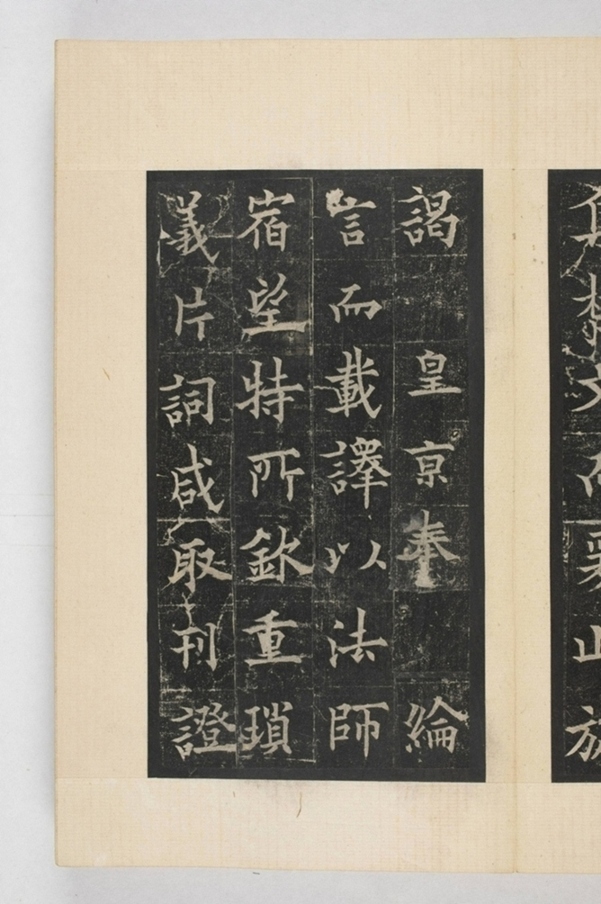 謁皇亰奉綸
言而載譯以法師
宿望特所欽重瑣
義片詞咸取刊證